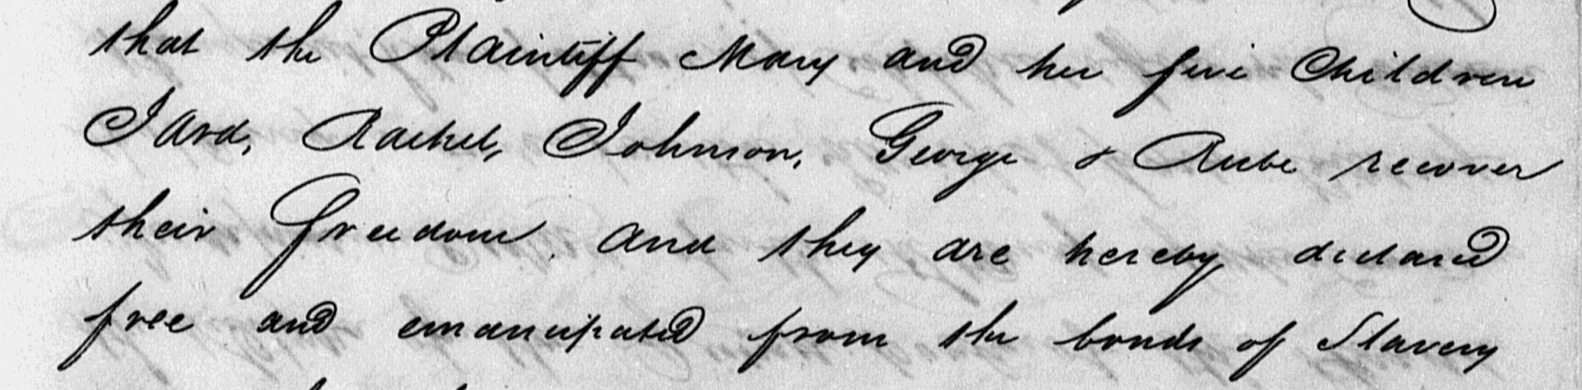 that the Plaintiff Mary and her five Children
Jard, Rachel, Johnson, George & Rube recover
their Freedom and they are hereby declared
free and emancipated from the bonds of Slavery